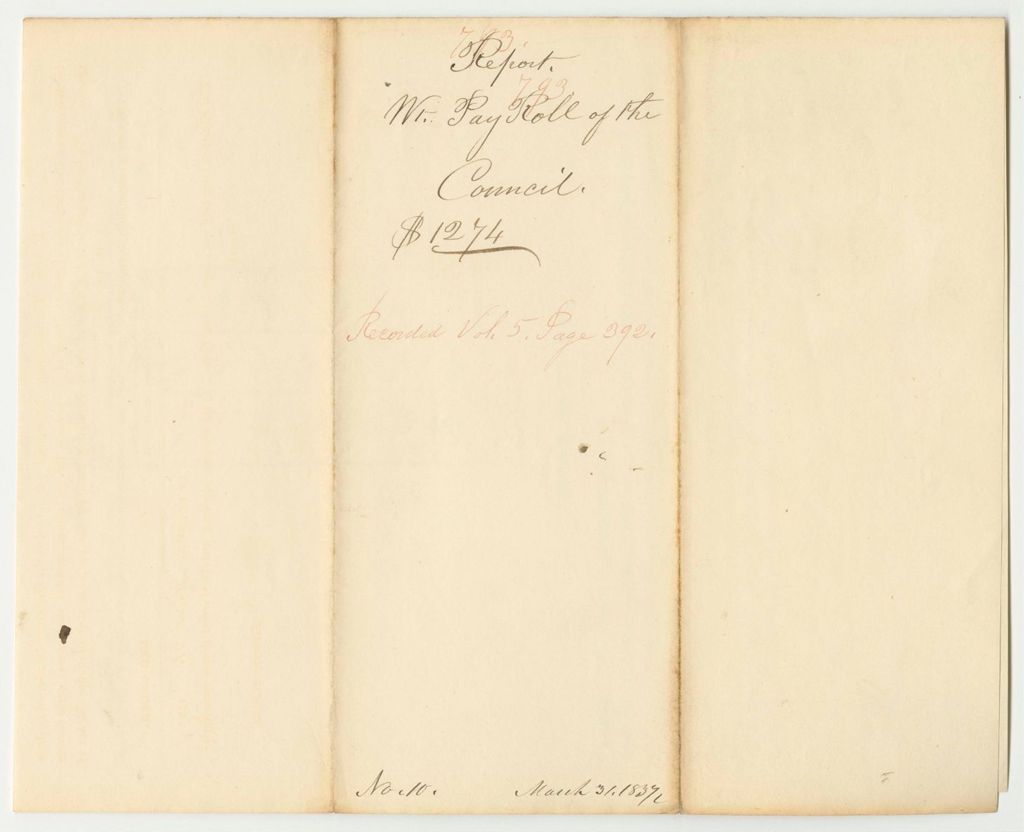 793.
Report.
793.
Wt. Pay Roll of the
Council.
$1274
Recorded Vol. 5. Page 392.
No. 10. March 31, 1837,